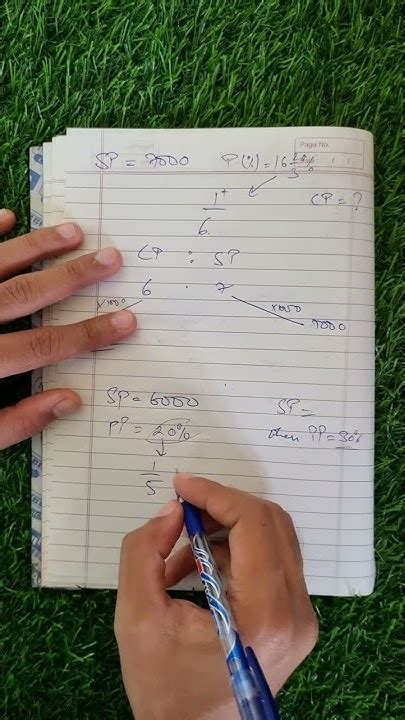 Page No.
SP = 7000 P(%) = 16 2/3 %
1+/6 CP = ?
CP : SP
6 : 7
x1000 x1000
7000
SP = 6000 SP =
PP = 20% then PP = 30%
1/5